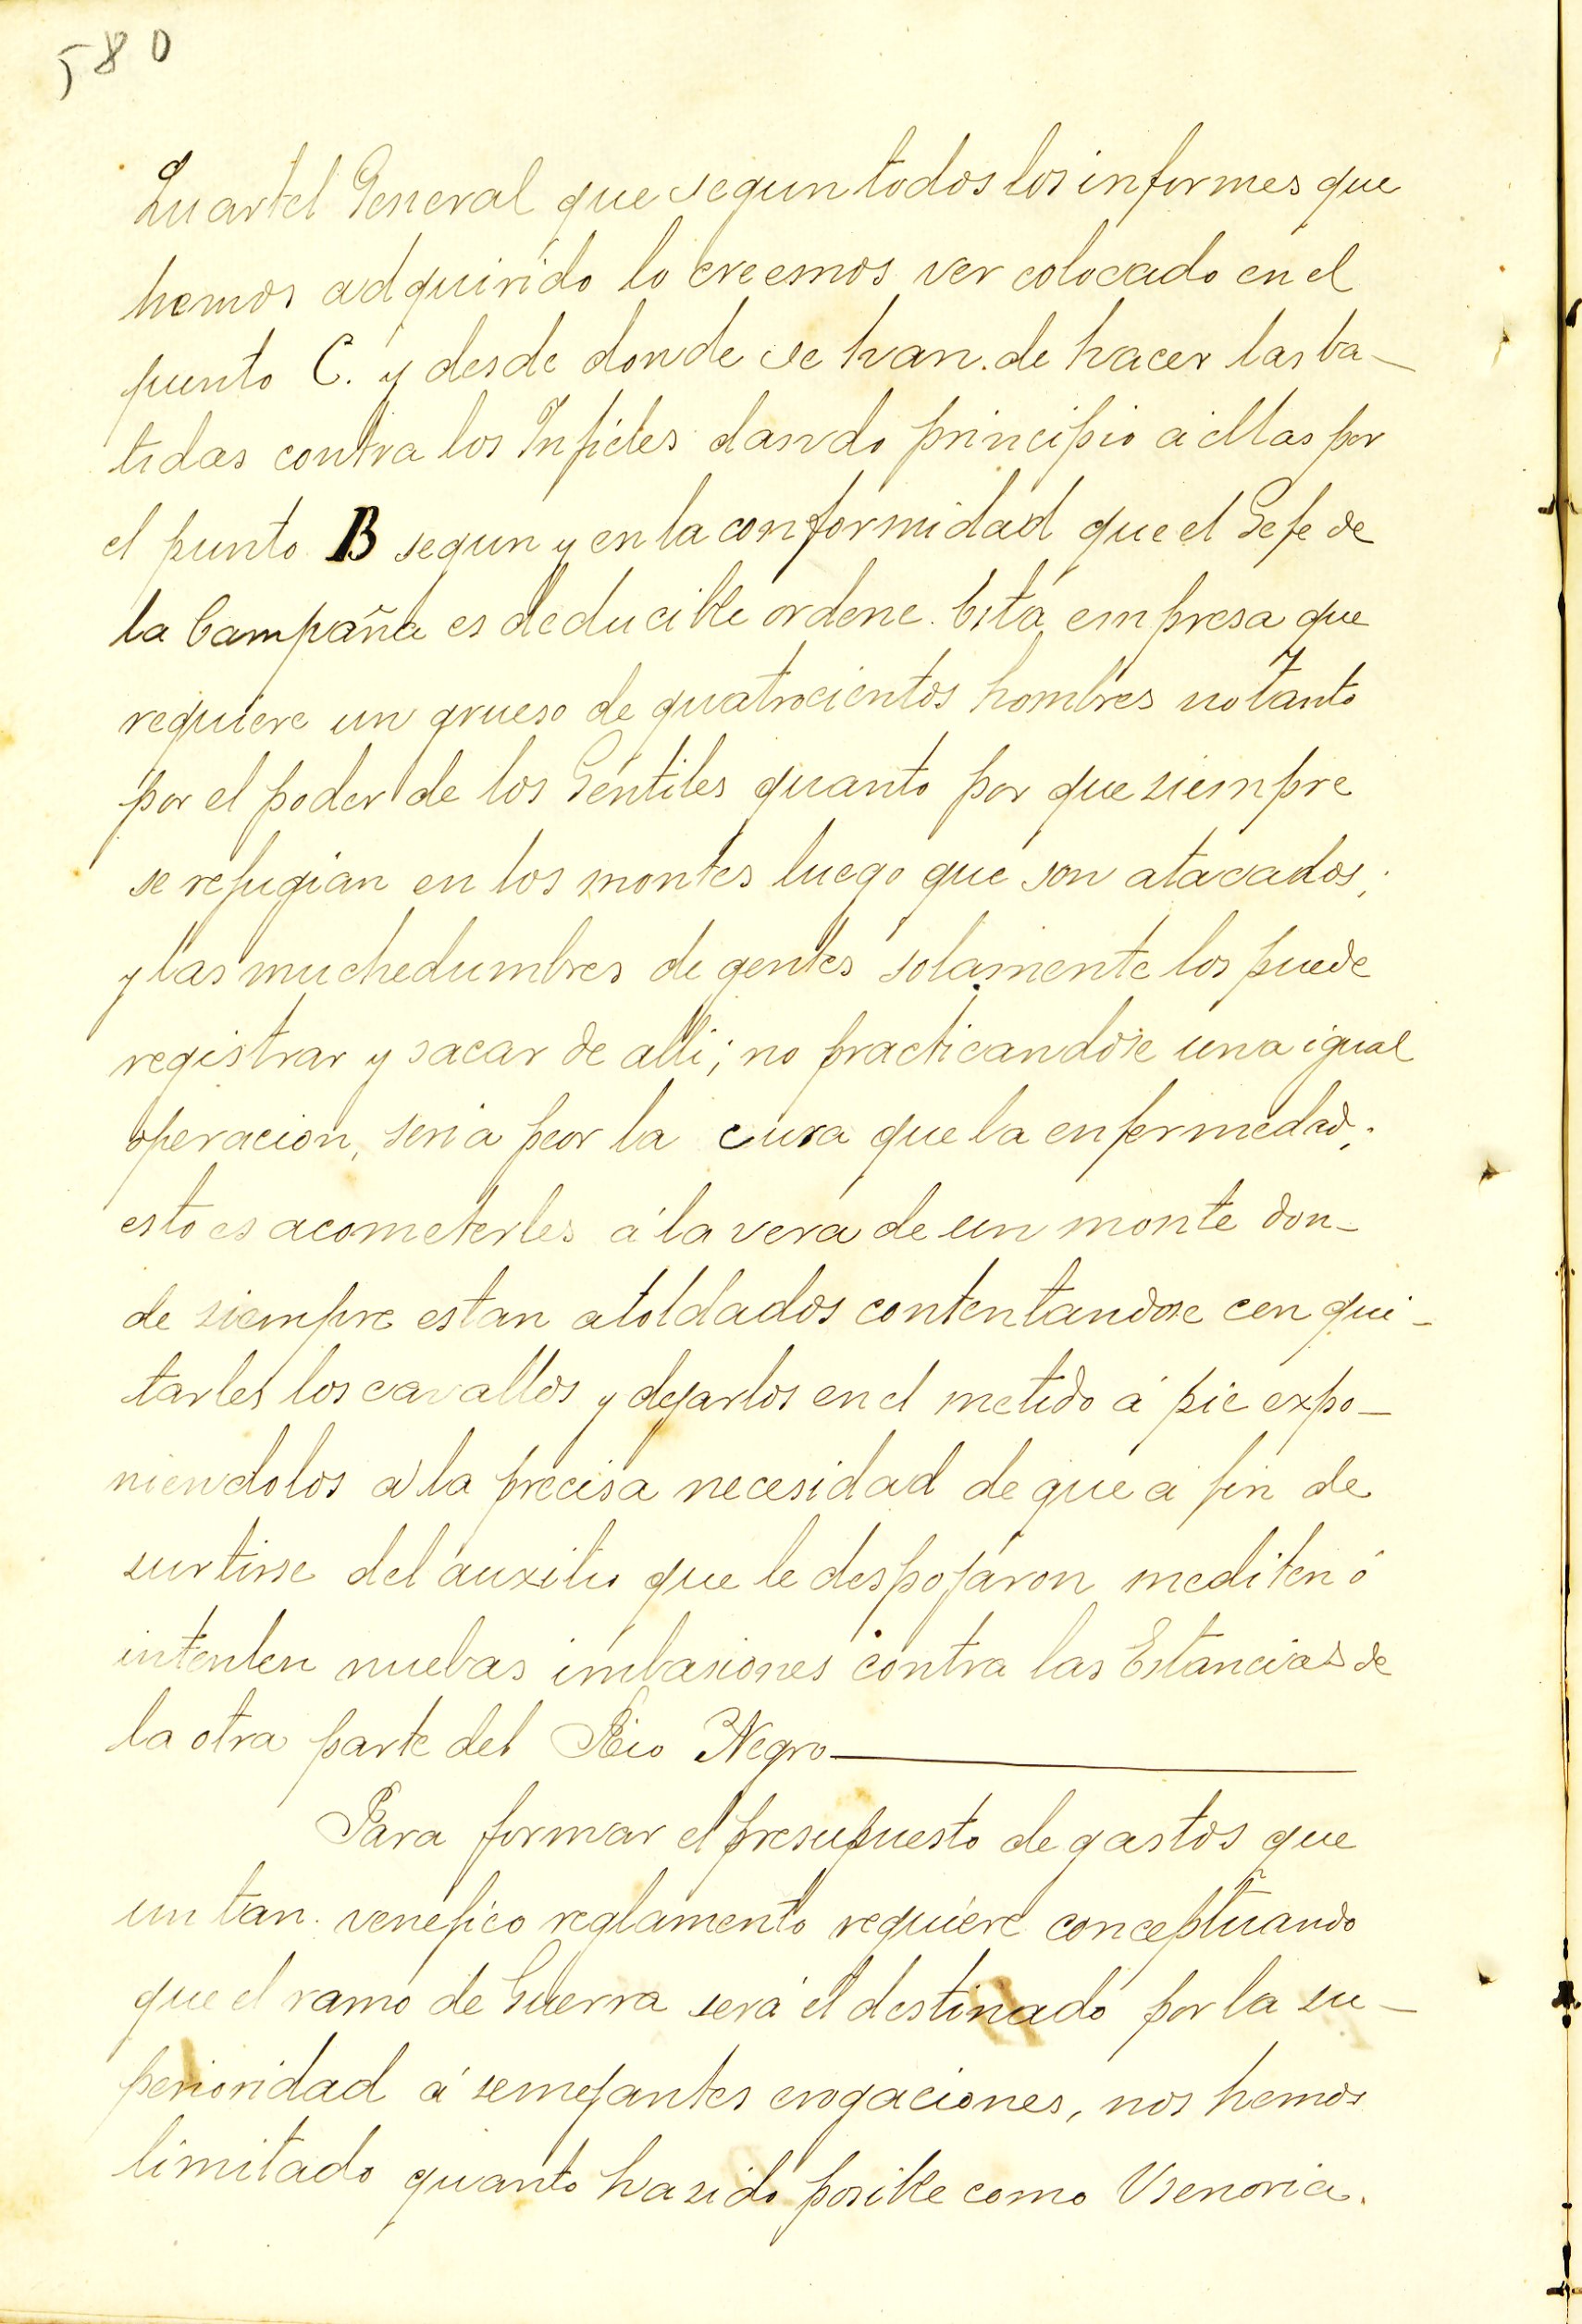 580
Quartel General que segun todos los informes que
hemos adquirido lo creemos ver colocado en el
punto C. y desde donde se han. de hacer las ba-
tidas contra los Infieles dando principio á ellas por
el punto B segun y en la conformidad que el Gefe de
la Campaña es deducible ordene. Esta empresa que
requiere un grueso de quatrocientos hombres no tanto
por el poder de los Gentiles quanto por que siempre
se refugian en los montes luego que son atacados;
y las muchedumbres de gentes solamente los puede
registrar y sacar de alli; no practicandose una igual
operacion, seria peor la cura que la enfermedad;
esto es acometerles á la vera de un monte don-
de siempre estan atoldados contentandose con qui-
tarles los cavallos y dejarlos en el metido á pie expo-
niendolos a la precisa necesidad de que a fin de
surtirse del auxilio que le despojaron mediten ó
intenten nuebas imbasiones contra las Estancias de
la otra parte del Rio Negro
Para formar el presupuesto de gastos que
un tan. venefico reglamento requiere conceptuando
que el ramo de Guerra será el destinado por la su-
perioridad á semejantes erogaciones, nos hemos
limitado quanto ha sido posible como Vsenoria.